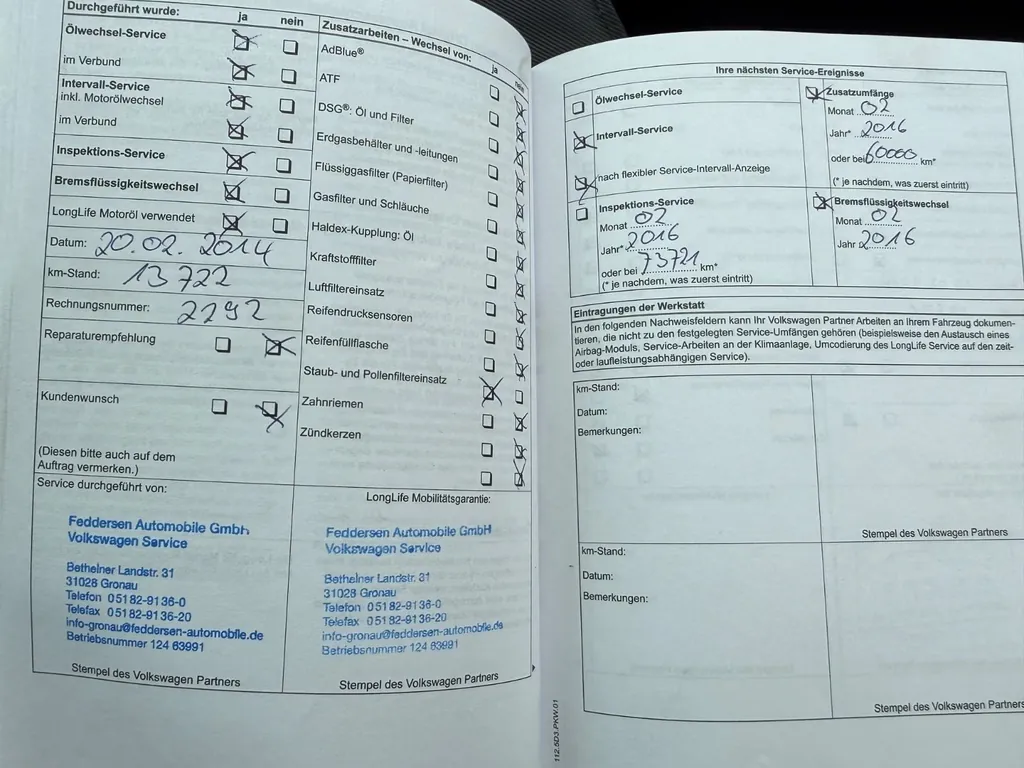 Durchgeführt wurde:
ja
nein
Ölwechsel-Service
im Verbund
Intervall-Service
inkl. Motorölwechsel
im Verbund
Inspektions-Service
Bremsflüssigkeitswechsel
LongLife Motoröl verwendet
Datum: 20.02.2014
km-Stand: 13722
Rechnungsnummer: 2292
Reparaturempfehlung
Kundenwunsch
(Diesen bitte auch auf dem
Auftrag vermerken.)
Zusatzarbeiten – Wechsel von:
ja
nein
AdBlue®
ATF
DSG®: Öl und Filter
Erdgasbehälter und -leitungen
Flüssiggasfilter (Papierfilter)
Gasfilter und Schläuche
Haldex-Kupplung: Öl
Kraftstofffilter
Luftfiltereinsatz
Reifendrucksensoren
Reifenfüllflasche
Staub- und Pollenfiltereinsatz
Zahnriemen
Zündkerzen
Service durchgeführt von:
Feddersen Automobile GmbH
Volkswagen Service
Betheiner Landstr. 31
31028 Gronau
Telefon 05182-9136-0
Telefax 05182-9136-20
info-gronau@feddersen-automobile.de
Betriebsnummer 124 63991
Stempel des Volkswagen Partners
LongLife Mobilitätsgarantie:
Feddersen Automobile GmbH
Volkswagen Service
Betheiner Landstr. 31
31028 Gronau
Telefon 05182-9136-0
Telefax 05182-9136-20
info-gronau@feddersen-automobile.de
Betriebsnummer 124 63991
Stempel des Volkswagen Partners
Ihre nächsten Service-Ereignisse
Ölwechsel-Service
Intervall-Service
nach flexibler Service-Intervall-Anzeige
Inspektions-Service
Monat 02
Jahr* 2016
oder bei 73721 km*
(* je nachdem, was zuerst eintritt)
Zusatzumfänge
Monat 02
Jahr* 2016
oder bei 60000 km*
(* je nachdem, was zuerst eintritt)
Bremsflüssigkeitswechsel
Monat 02
Jahr 2016
Eintragungen der Werkstatt
In den folgenden Nachweisfeldern kann Ihr Volkswagen Partner Arbeiten an Ihrem Fahrzeug dokumen-
tieren, die nicht zu den festgelegten Service-Umfängen gehören (beispielsweise den Austausch eines
Airbag-Moduls, Service-Arbeiten an der Klimaanlage, Umcodierung des LongLife Service auf den zeit-
oder laufleistungsabhängigen Service).
km-Stand:
Datum:
Bemerkungen:
Stempel des Volkswagen Partners
km-Stand:
Datum:
Bemerkungen:
Stempel des Volkswagen Partners
112.5D3.PKW.01